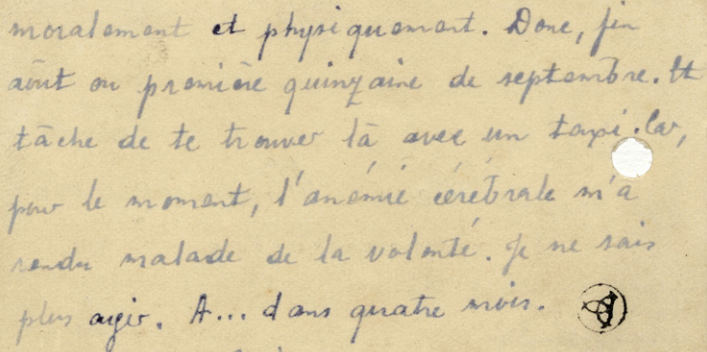 moralement et physiquement. Donc, fin
août ou première quinzaine de septembre. Et
tâche de te trouver là avec un taxi. Car,
pour le moment, l'anémie cérébrale m'a
rendu malade de la volonté. Je ne sais
plus agir. A... dans quatre mois.